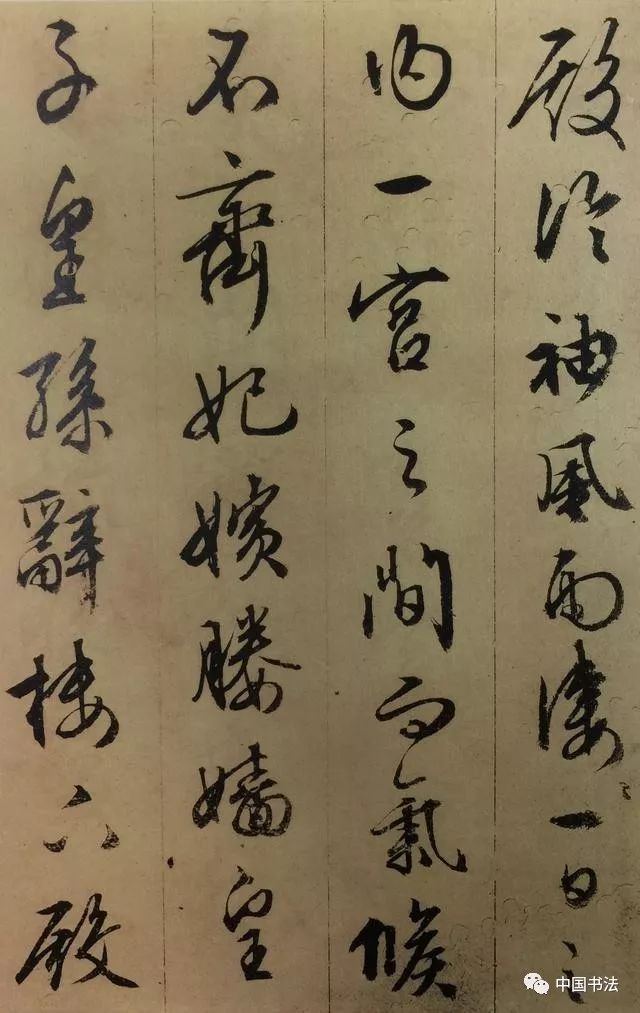 殿冷袖風雨凄〻一日之
内一宫之間而氣候
不齊妃嬪媵嬙皇
子皇孫辭樓下殿
中国书法